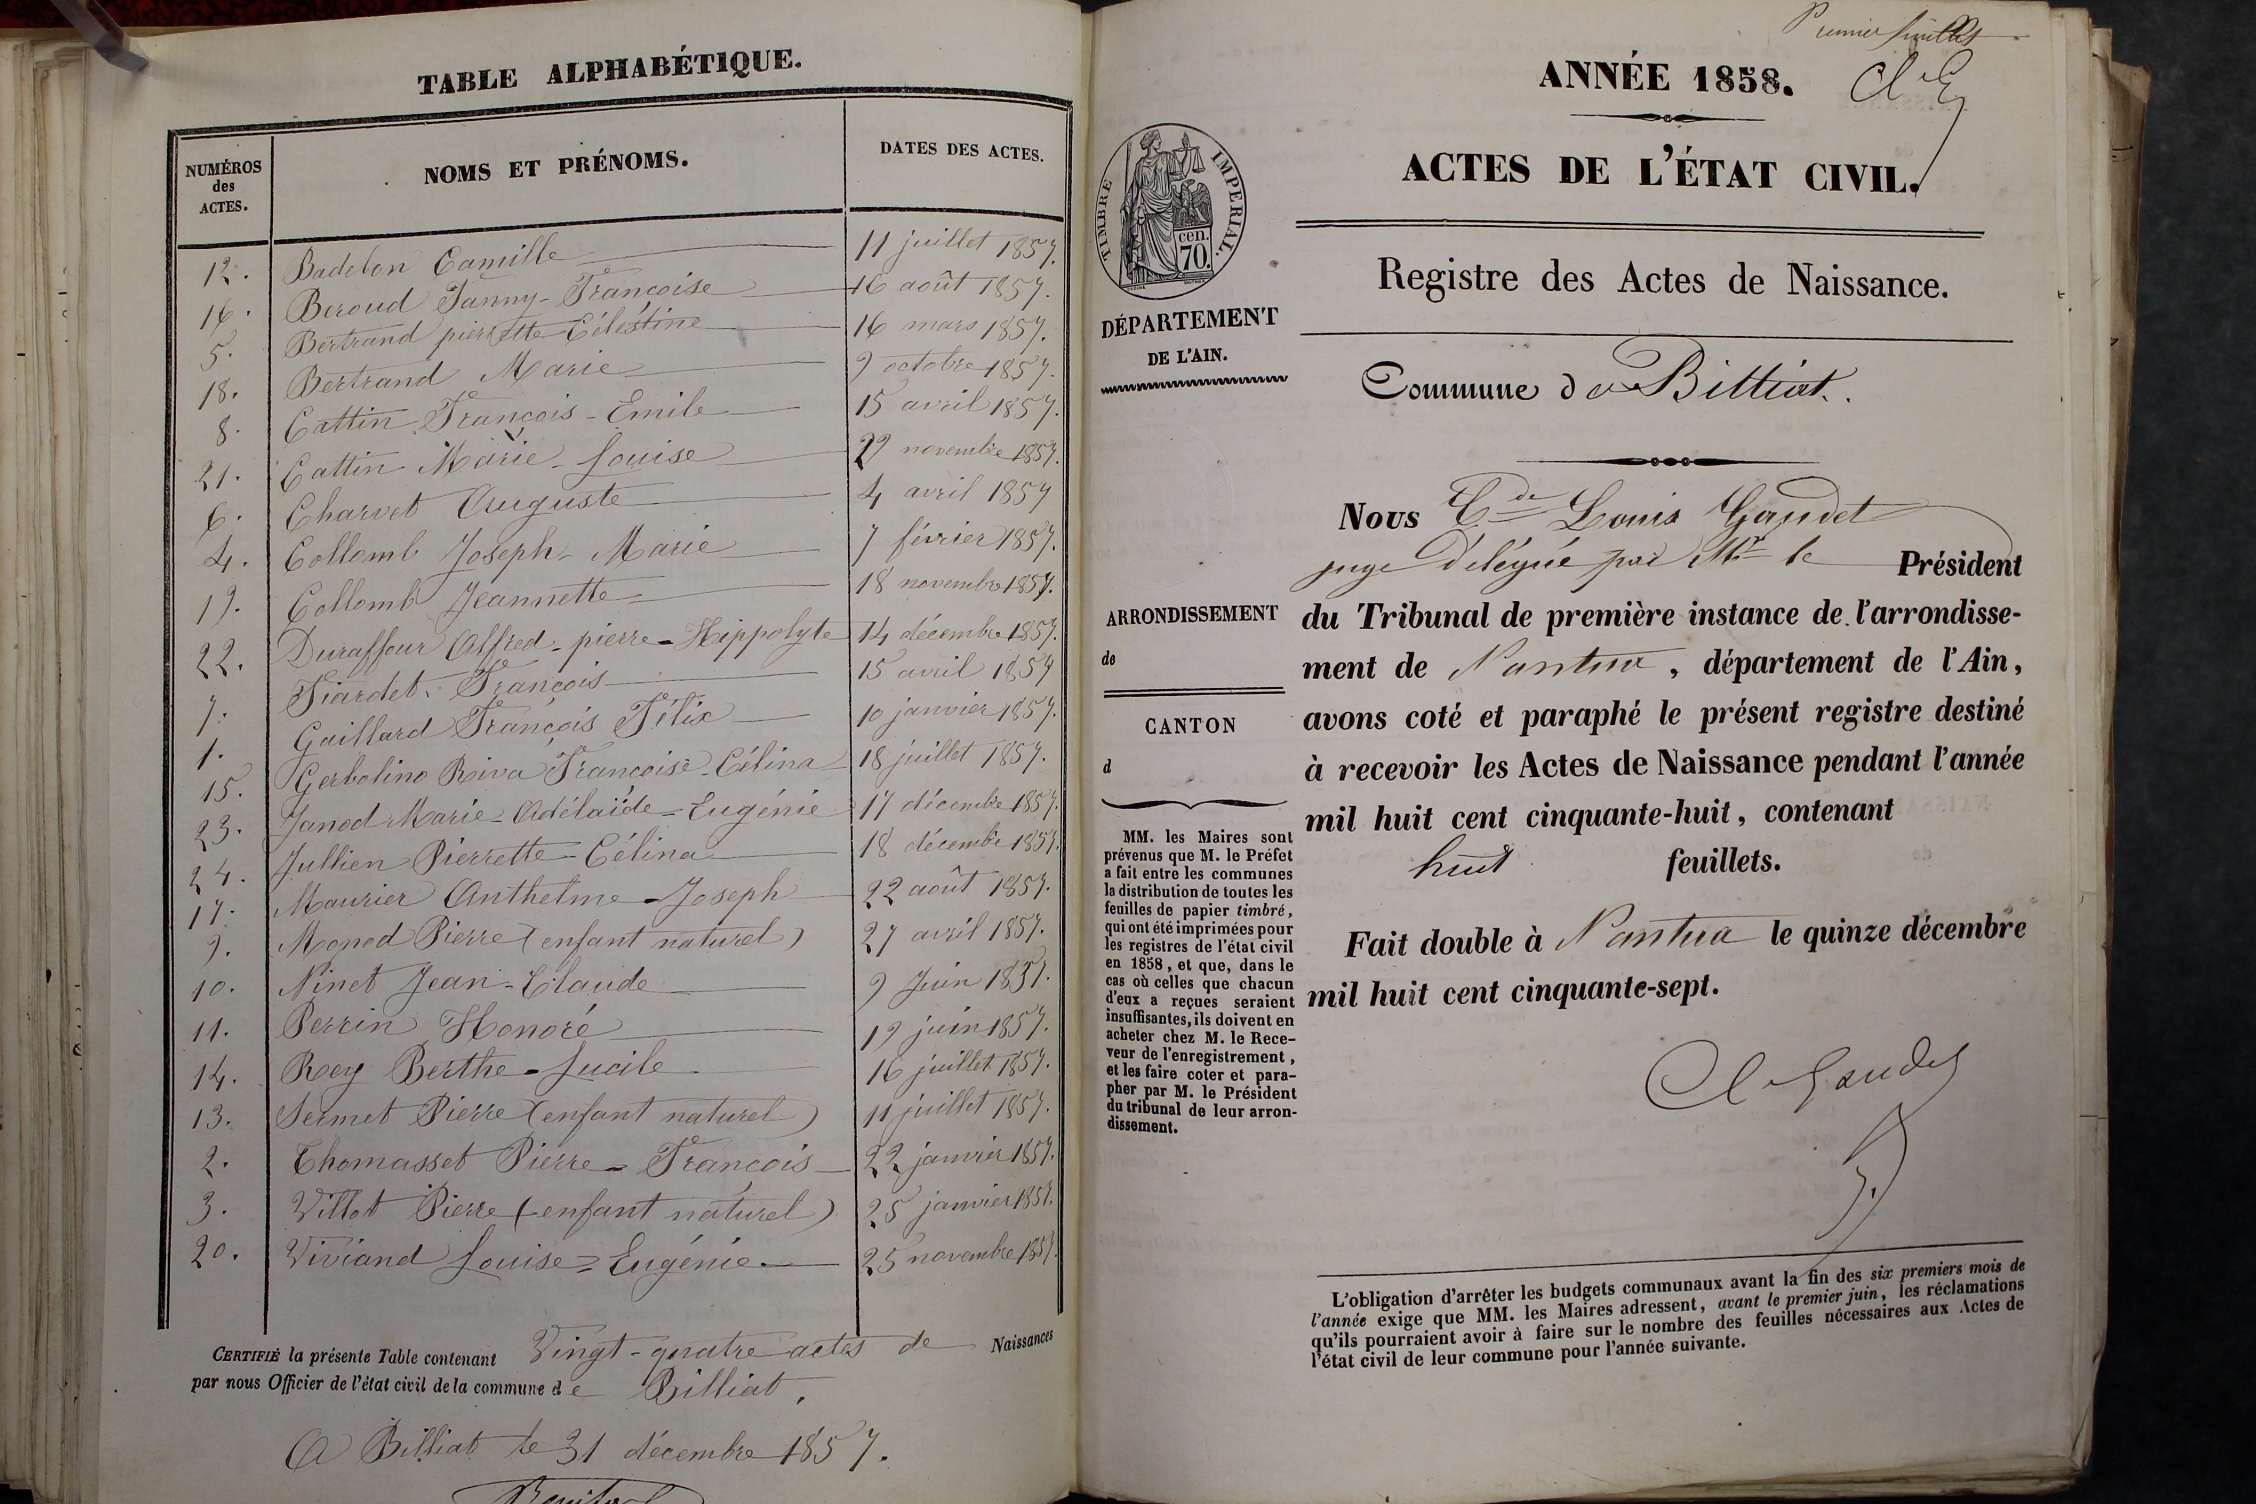 TABLE ALPHABÉTIQUE.
NUMÉROS
des
ACTES.
NOMS ET PRÉNOMS.
DATES DES ACTES.
12. Badelon Camille 11 juillet 1857.
16. Beroud Fanny - Françoise 16 août 1857.
5. Bertrand pierrette Célestine 16 mars 1857.
18. Bertrand Marie 9 octobre 1857.
8. Cattin François - Emile 15 avril 1857.
21. Cattin Marie - Louise 29 novembre 1857.
6. Charvet Auguste 4 avril 1857
4. Collomb Joseph - Marie 7 février 1857.
19. Collomb Jeannette 18 novembre 1857.
22. Duraffour Alfred - pierre - Hippolyte 14 décembre 1857.
7. Fiardet François 15 avril 1857
1. Gaillard François Félix 10 janvier 1857.
15. Gerbolino Roiva Françoise - Célina 18 juillet 1857.
23. Janod Marie - Adélaïde - Eugénie 17 décembre 1857.
24. Jullien Pierrette - Célina 18 décembre 1857.
17. Maurier Anthelme - Joseph 22 août 1857.
9. Monod Pierre (enfant naturel) 27 avril 1857.
10. Ninet Jean - Claude 9 Juin 1857.
11. Perrin Honoré 19 juin 1857.
14. Rey Berthe - Lucile 16 juillet 1857.
13. Sermet Pierre (enfant naturel) 11 juillet 1857.
2. Thomasset Pierre - François 22 janvier 1857.
3. Villot Pierre (enfant naturel) 25 janvier 1857.
20. Viviand Louise - Eugénie 25 novembre 1857.
CERTIFIÉ la présente Table contenant Vingt-quatre actes de Naissances
par nous Officier de l'état civil de la commune de Billiat.
A Billiat le 31 décembre 1857.
Premier feuillet
ANNÉE 1858.
ACTES DE L'ÉTAT CIVIL.
TIMBRE IMPERIAL.
cen.
70.
Registre des Actes de Naissance.
DÉPARTEMENT
DE L'AIN.
Commune de Billiat.
Nous Cde Louis Gaudet
juge délégué par Mr le Président
ARRONDISSEMENT
de
du Tribunal de première instance de l'arrondisse-
ment de Nantua, département de l'Ain,
CANTON
d
avons coté et paraphé le présent registre destiné
à recevoir les Actes de Naissance pendant l'année
mil huit cent cinquante-huit, contenant
huit feuillets.
MM. les Maires sont
prévenus que M. le Préfet
a fait entre les communes
la distribution de toutes les
feuilles de papier timbré,
qui ont été imprimées pour
les registres de l'état civil
en 1858, et que, dans le
cas où celles que chacun
d'eux a reçues seraient
insuffisantes, ils doivent en
acheter chez M. le Rece-
veur de l'enregistrement,
et les faire coter et para-
pher par M. le Président
du tribunal de leur arron-
dissement.
Fait double à Nantua le quinze décembre
mil huit cent cinquante-sept.
Cl Gaudet
L'obligation d'arrêter les budgets communaux avant la fin des six premiers mois de
l'année exige que MM. les Maires adressent, avant le premier juin, les réclamations
qu'ils pourraient avoir à faire sur le nombre des feuilles nécessaires aux Actes de
l'état civil de leur commune pour l'année suivante.